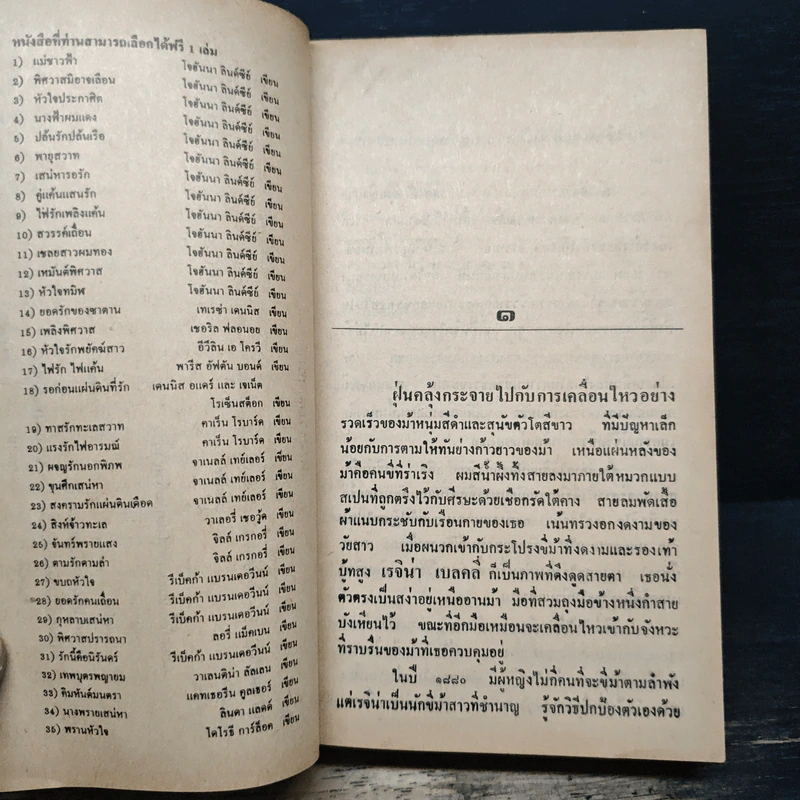 หนังสือที่ท่านสามารถเลือกได้ฟรี 1 เล่ม
1) แม่ชาวฟ้า โจฮันนา ลินด์ซีย์ เขียน
2) พิศวาสมิอาจเลือน โจฮันนา ลินด์ซีย์ เขียน
3) หัวใจประกาศิต โจฮันนา ลินด์ซีย์ เขียน
4) นางฟ้าผมแดง โจฮันนา ลินด์ซีย์ เขียน
5) ปล้นรักปล้นเรือ โจฮันนา ลินด์ซีย์ เขียน
6) พายุสวาท โจฮันนา ลินด์ซีย์ เขียน
7) เสน่หารอรัก โจฮันนา ลินด์ซีย์ เขียน
8) คู่แค้นแสนรัก โจฮันนา ลินด์ซีย์ เขียน
9) ไฟรักเพลิงแค้น โจฮันนา ลินด์ซีย์ เขียน
10) สวรรค์เถื่อน โจฮันนา ลินด์ซีย์ เขียน
11) เชลยสาวผมทอง โจฮันนา ลินด์ซีย์ เขียน
12) เหมันต์พิศวาส โจฮันนา ลินด์ซีย์ เขียน
13) หัวใจทมิฬ โจฮันนา ลินด์ซีย์ เขียน
14) ยอดรักของซาตาน เทเรซ่า เดนนิส เขียน
15) เพลิงพิศวาส เชอริล ฟลอนอย เขียน
16) หัวใจรักพยัคฆ์สาว อีวีลิน เอ โครวี เขียน
17) ไฟรัก ไฟแค้น พารีส อัฟตัน บอนด์ เขียน
18) รอก่อนแผ่นดินที่รัก เดนนิส อแดร์ และ เจเน็ต
โรเซ็นสต็อก เขียน
19) ทาสรักทะเลสวาท คาเร็น โรบาร์ด เขียน
20) แรงรักไฟอารมณ์ คาเร็น โรบาร์ด เขียน
21) ผจญรักนอกพิภพ จาเนลล์ เทย์เลอร์ เขียน
22) ขุนศึกเสน่หา จาเนลล์ เทย์เลอร์ เขียน
23) สงครามรักแผ่นดินเดือด จาเนลล์ เทย์เลอร์ เขียน
24) สิงห์จ้าวทะเล วาเลอรี่ เชอวู้ด เขียน
25) จันทร์พรายแสง จิลล์ เกรกอรี่ เขียน
26) ตามรักตามล่า จิลล์ เกรกอรี่ เขียน
27) ขบถหัวใจ รีเบ็คก้า แบรนเดอวีนน์ เขียน
28) ยอดรักคนเถื่อน รีเบ็คก้า แบรนเดอวีนน์ เขียน
29) กุหลาบเสน่หา รีเบ็คก้า แบรนเดอวีนน์ เขียน
30) พิศวาสปรารถนา ลอรี่ แม็คเบน เขียน
31) รักนี้คือนิรันดร์ รีเบ็คก้า แบรนเดอวีนน์ เขียน
32) เทพบุตรพญายม วาเลนติน่า ลัลเลน เขียน
33) หิมพันต์มนตรา แคทเธอรีน คูลเธอร์ เขียน
34) นางพรายเสน่หา ลินดา แลดด์ เขียน
35) พรานหัวใจ โดโรธี การ์ล็อค เขียน
๑
ฝุ่นคลุ้งกระจายไปกับการเคลื่อนไหวอย่าง
รวดเร็วของม้าหนุ่มสีดำและสุนัขตัวโตสีขาว ที่มีปัญหาเล็ก
น้อยกับการตามให้ทันย่างก้าวยาวของม้า เหนือแผ่นหลังของ
ม้าคือคนขี่ที่ร่าเริง ผมสีน้ำผึ้งทิ้งสายลงมาภายใต้หมวกแบบ
สเปนที่ถูกตรึงไว้กับศีรษะด้วยเชือกรัดใต้คาง สายลมพัดเสื้อ
ผ้าแนบกระชับกับเรือนกายของเธอ เน้นทรวงอกงดงามของ
วัยสาว เมื่อผนวกเข้ากับกระโปรงขี่ม้าที่งดงามและรองเท้า
บู้ทสูง เรจิน่า เบลคลี่ ก็เป็นภาพที่ดึงดูดสายตา เธอนั่ง
ตัวตรงเป็นสง่าอยู่เหนืออานม้า มือที่สวมถุงมือข้างหนึ่งกำสาย
บังเหียนไว้ ขณะที่อีกมือเหมือนจะเคลื่อนไหวเข้ากับจังหวะ
ที่ราบรื่นของม้าที่เธอควบคุมอยู่
ในปี ๑๘๘๐ มีผู้หญิงไม่กี่คนที่จะขี่ม้าตามลำพัง
แต่เรจิน่าเป็นนักขี่ม้าสาวที่ชำนาญ รู้จักวิธีปกป้องตัวเองด้วย